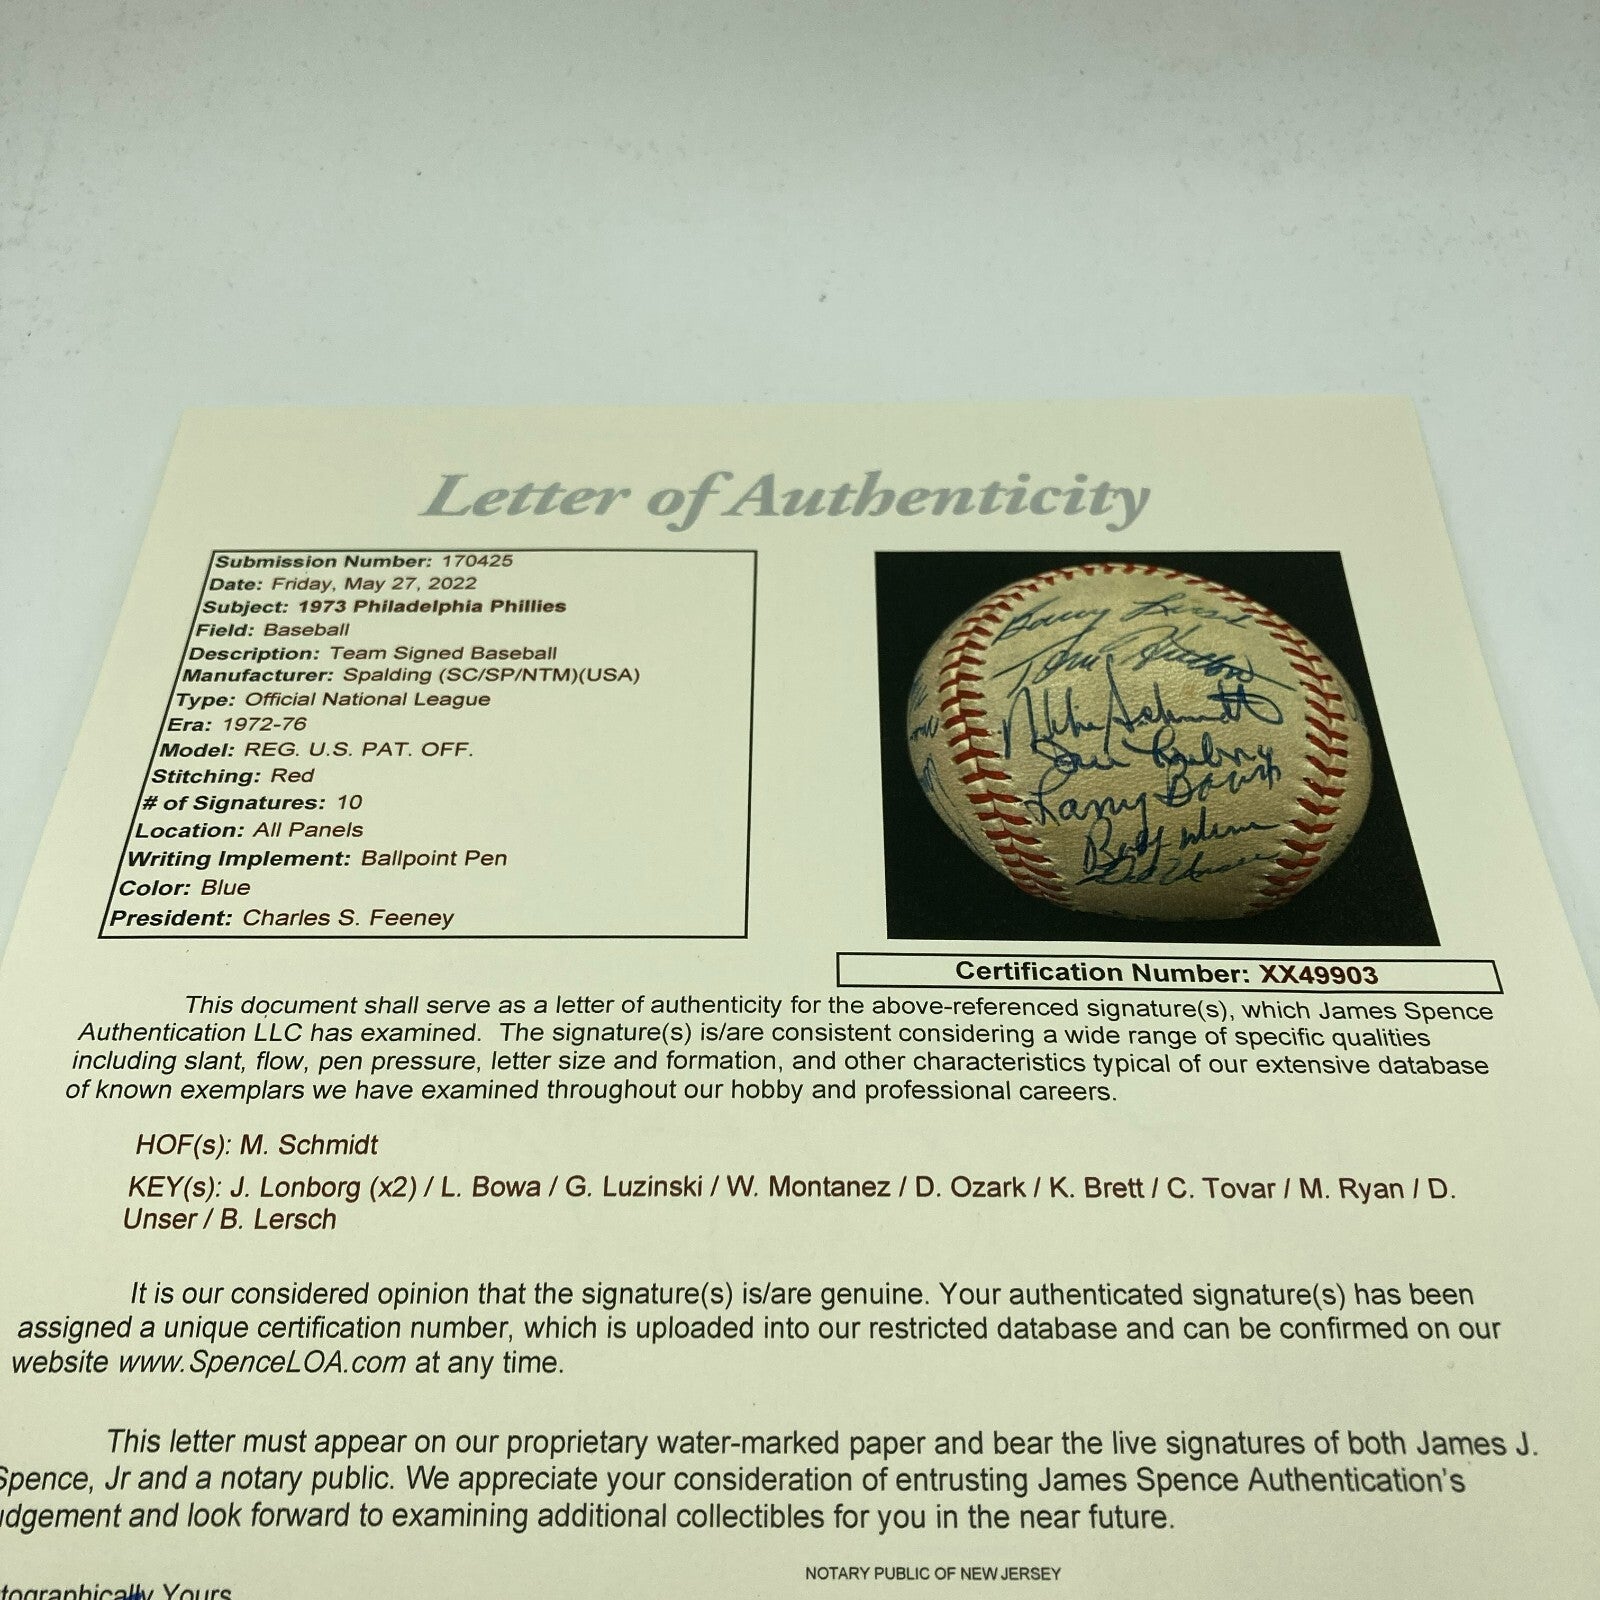 Letter of Authenticity
Submission Number: 170425
Date: Friday, May 27, 2022
Subject: 1973 Philadelphia Phillies
Field: Baseball
Description: Team Signed Baseball
Manufacturer: Spalding (SC/SP/NTM)(USA)
Type: Official National League
Era: 1972-76
Model: REG. U.S. PAT. OFF.
Stitching: Red
# of Signatures: 10
Location: All Panels
Writing Implement: Ballpoint Pen
Color: Blue
President: Charles S. Feeney
Barry Lersch
Tom Hutton
Mike Schmidt
Larry Bowa
Del Unser
Certification Number: XX49903
This document shall serve as a letter of authenticity for the above-referenced signature(s), which James Spence
Authentication LLC has examined. The signature(s) is/are consistent considering a wide range of specific qualities
including slant, flow, pen pressure, letter size and formation, and other characteristics typical of our extensive database
of known exemplars we have examined throughout our hobby and professional careers.
HOF(s): M. Schmidt
KEY(s): J. Lonborg (x2) / L. Bowa / G. Luzinski / W. Montanez / D. Ozark / K. Brett / C. Tovar / M. Ryan / D.
Unser / B. Lersch
It is our considered opinion that the signature(s) is/are genuine. Your authenticated signature(s) has been
assigned a unique certification number, which is uploaded into our restricted database and can be confirmed on our
website www.SpenceLOA.com at any time.
This letter must appear on our proprietary water-marked paper and bear the live signatures of both James J.
Spence, Jr and a notary public. We appreciate your consideration of entrusting James Spence Authentication's
udgement and look forward to examining additional collectibles for you in the near future.
NOTARY PUBLIC OF NEW JERSEY
tographically Yours